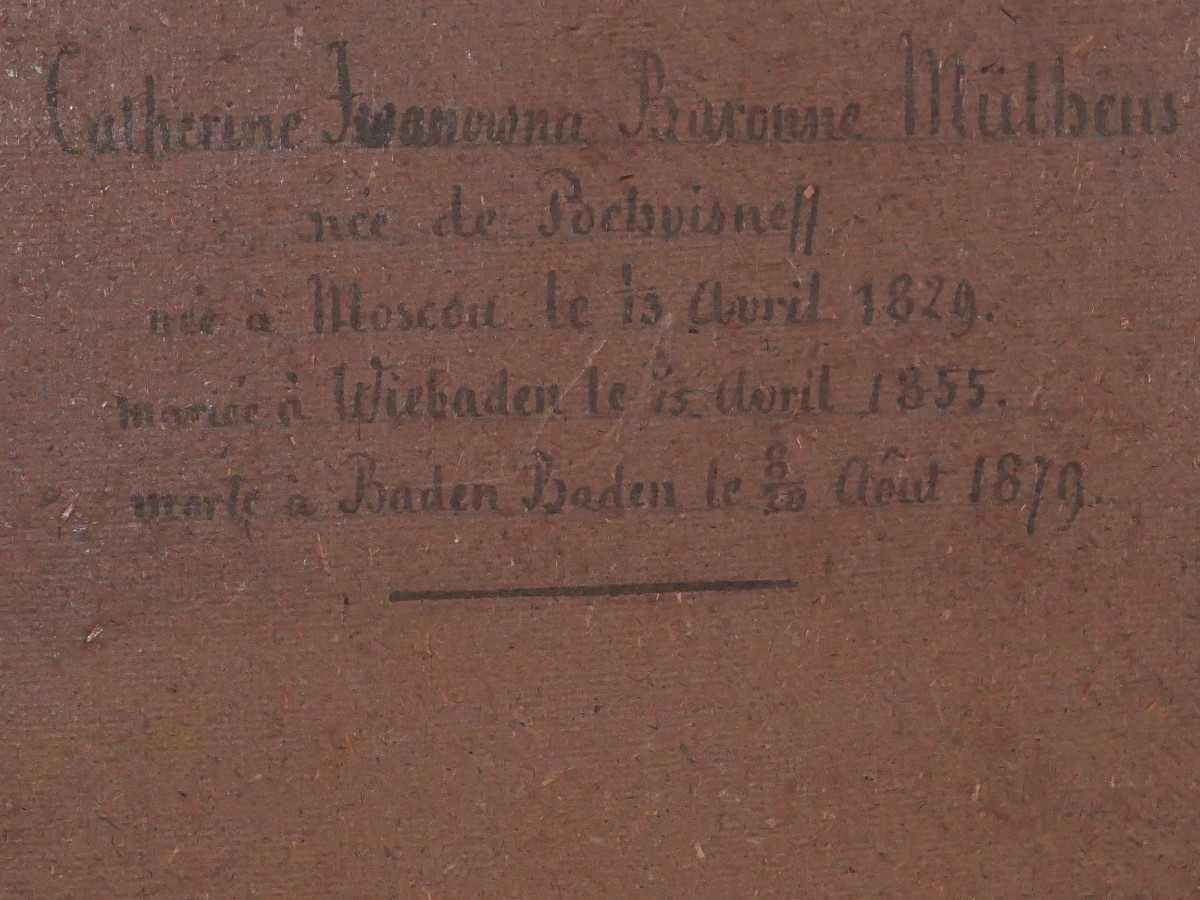 Catherine Iwanowna Baronne Mülhens
née de Pochvisneff
née à Moscou le 1/13 Avril 1829.
mariée à Wiebaden le 3/15 Avril 1855.
morte à Baden Baden le 8/20 Aôut 1879.